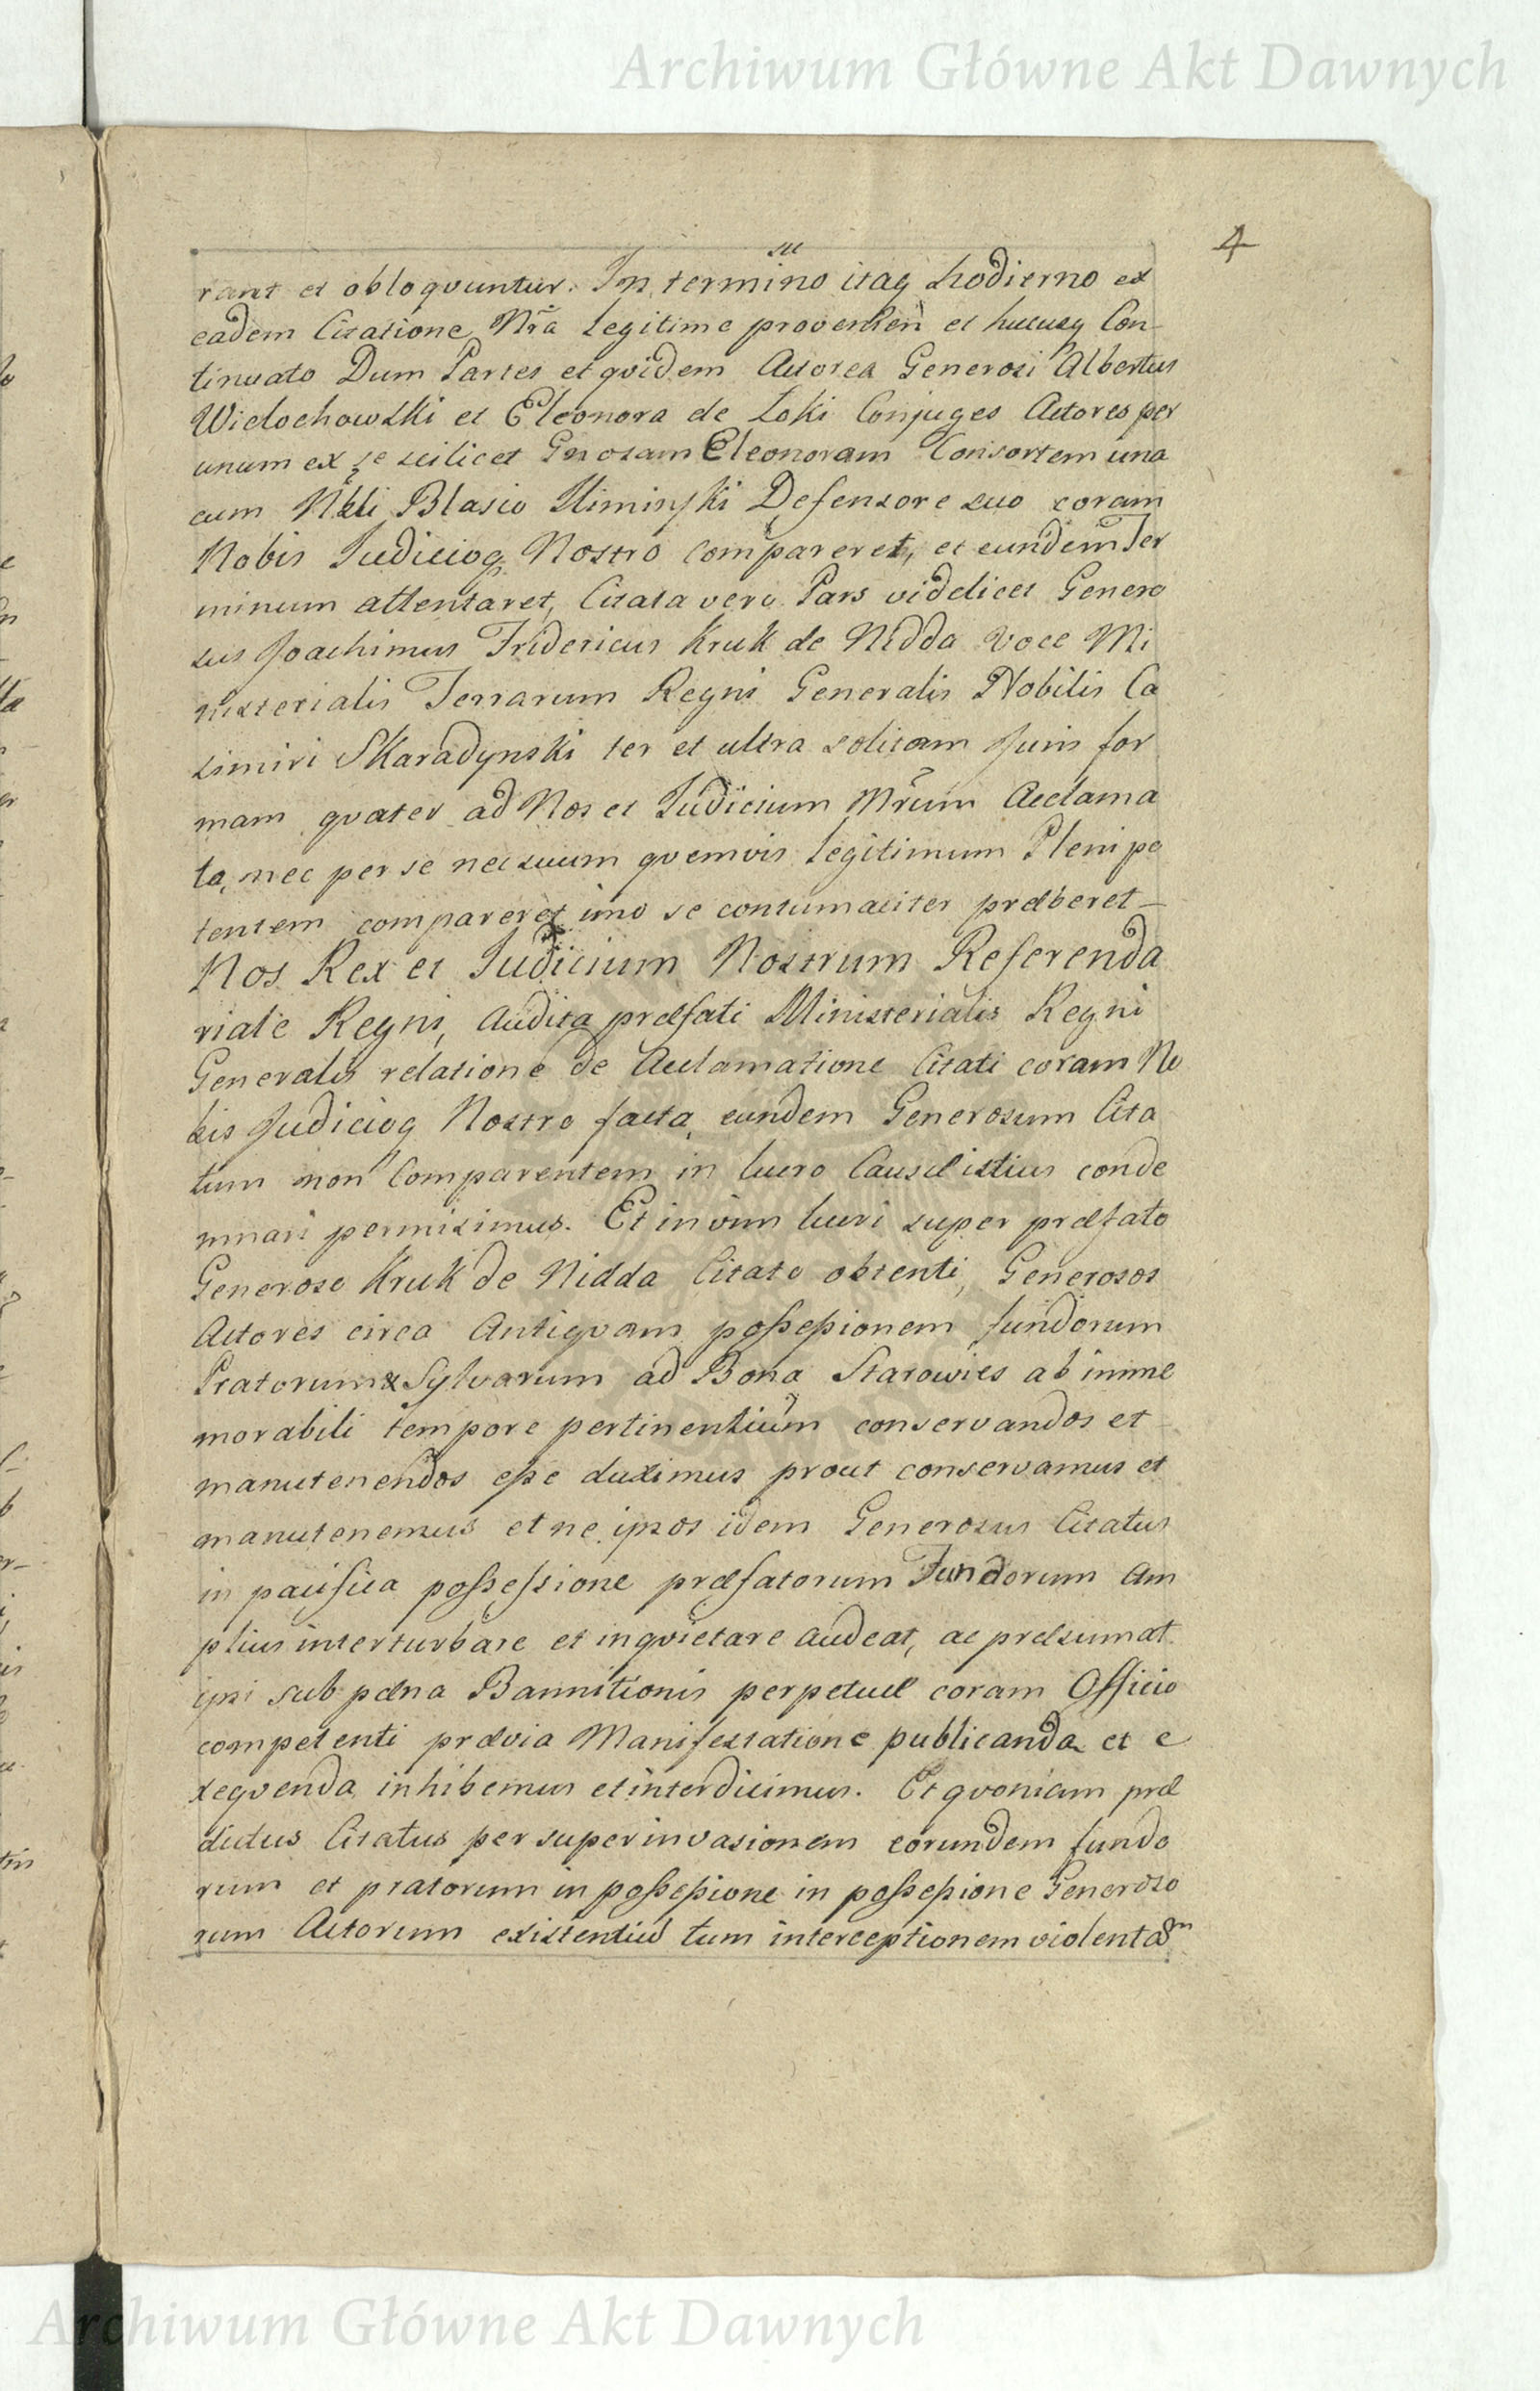 Archiwum Główne Akt Dawnych
4
rant et obloquuntur. In termino itaq hodierno ex
eadem Citatione Nrã legitime provenien et hucusq Con-
tinuato Dum Partes et qvidem Actorea Generosi Albertus
Wielochowski et Eleonora de Loki Conjuges Actores per
unum ex se scilicet Gnosam Eleonoram Consortem una
cum Nbli Blasio Defensore suo coram
Nobis Judicioq Nostro compareret, et eundem Ter
minum attentaret, Citata vero Pars videlicet Genero
sus Joachimus Fridericus Kruk de Nidda voce Mi
nisterialis Terrarum Regni Generalis Nobilis Ca
simiri Skaradynski ter et ultra solitam Juris for
mam qvater ad Nos et Judicium Nrũm Acclama
ta, nec per se nec suum qvemvis legitimum Plenipo
tentem compareret imo se contumaciter præberet –
Nos Rex et Judicium Nostrum Referenda
riale Regni, Audita præfati Ministerialis Regni
Generalis relatione de Acclamatione Citati coram No
bis Judicioq Nostro facta, eundem Generosum Cita
tum non Comparentem in lucro Causæ istius conde
mnari permisimus. Et in vim lucri super præfato
Generoso Kruk de Nidda Citato obtenti, Generosos
Actores circa Antiqvam possessionem fundorum
Pratorum & Sylvarum ad Bona Starowies ab imme
morabili tempore pertinentium conservandos et
manutenendos esse duximus prout conservamus et
manutenemus et ne ipsos idem Generosus Citatus
in pacifica possessione præfatorum Fundorum Am
plius interturbare et inqvietare audeat, ac præsumat
ipsi sub pæna Bannitionis perpetuæ coram Officio
competenti prævia Manifestatione publicanda et e
xeqvenda inhibemus et interdicimus. Et qvoniam præ
dictus Citatus per superinvasionem eorundem fundo
rum et pratorum in possessione in possessione Generoso
rum Actorum existentium tum interceptionem violentam
Archiwum Główne Akt Dawnych